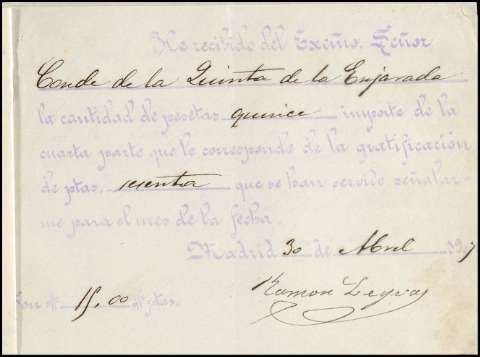 He recibido del Excmo. Señor
Conde de la Quinta de la Enjarada
la cantidad de pesetas quince importe de la
cuarta parte que le corresponde de la gratificación
de ptas. sesenta que se han servido señalar-
me para el mes de la fecha.
Madrid 30 de Abril 19 7
Son 15,00 ptas.
Ramon Leyva